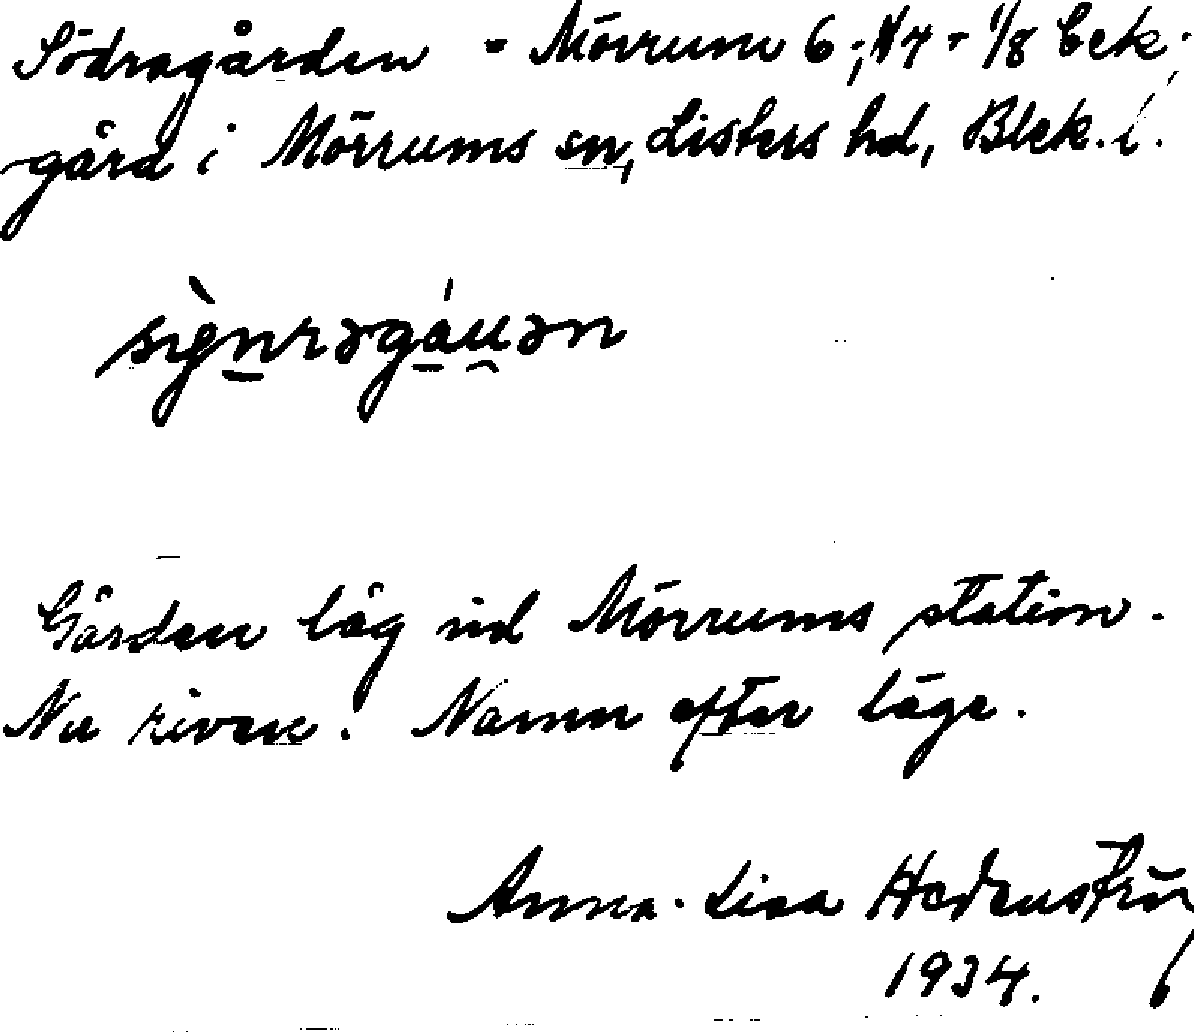 Södragården = Mörrum 6; N4 - 1/8 Bek;
gård i Mörrums sn, Listers hd, Blek. l.
Gården låg vid Mörrums station.
Nu riven. Namn efter läge.
Anna-Lisa Hedenström
1934.